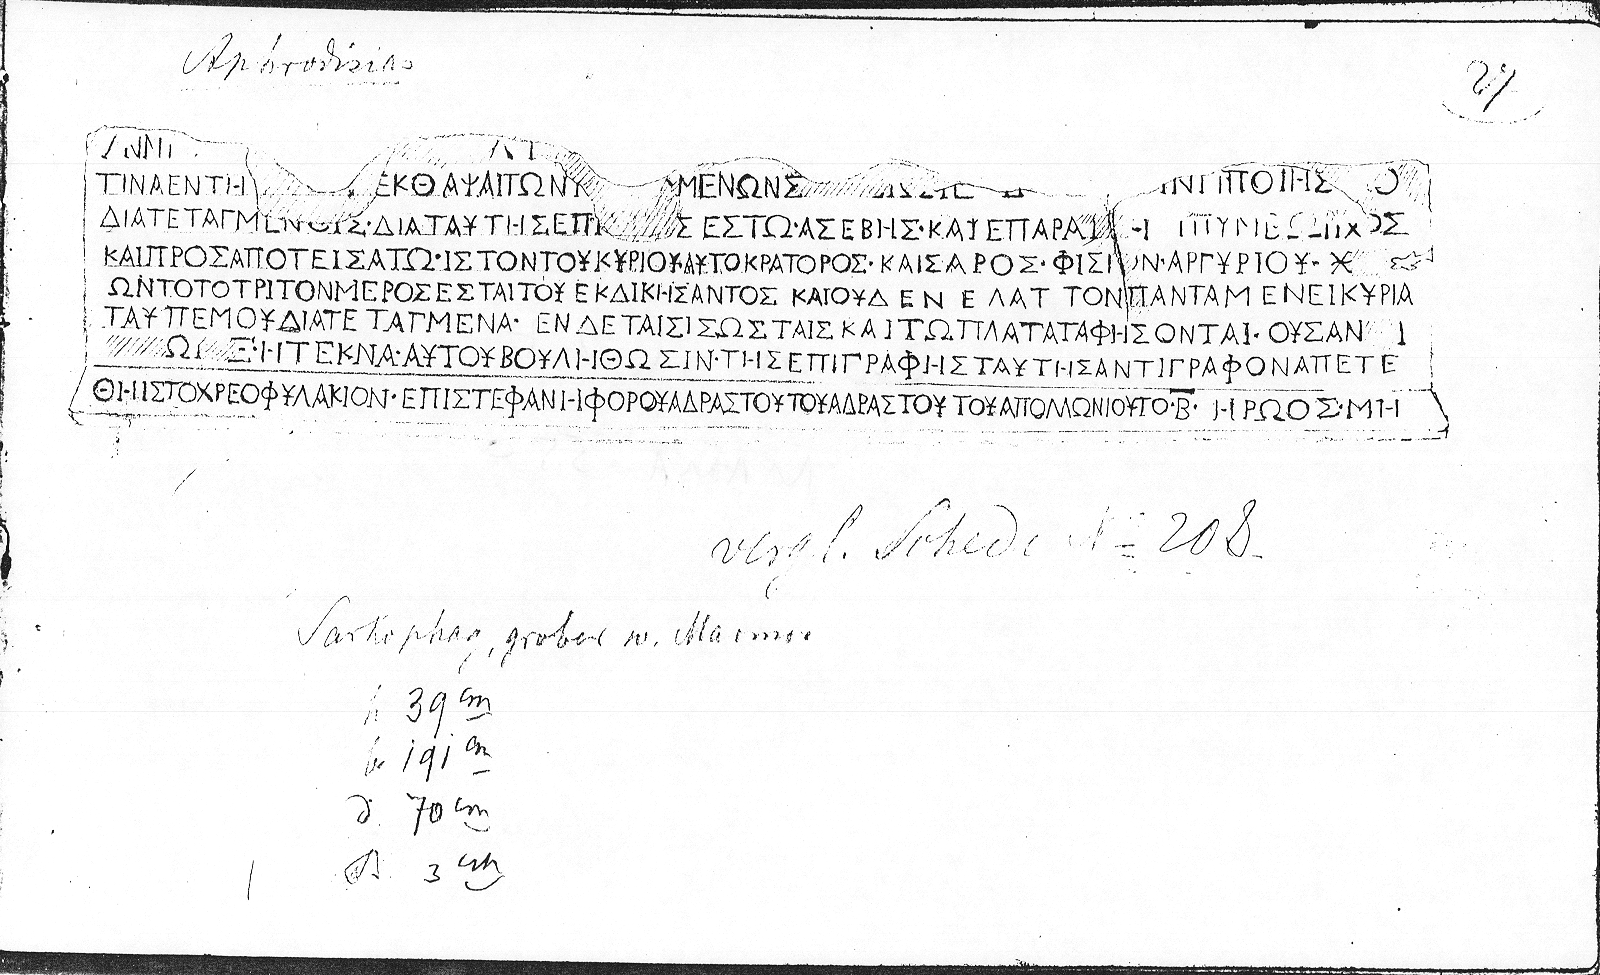 Aphrodisias
27
ΤΙΝΑΕΝΤΗ ΕΚΘΑΨΑΙΤΩΝΚ ΜΕΝΩΝΣ ΠΟΙΗΣ Ο
ΔΙΑΤΕΤΑΓΜΕΝΟΙΣ·ΔΙΑΤΑΥΤΗΣΕΠΙ Σ ΕΣΤΩ·ΑΣΕΒΗΣ·ΚΑΙΕΠΑΡΑ ΟΣ
ΚΑΙΠΡΟΣΑΠΟΤΕΙΣΑΤΩ·ΙΣΤΟΝΤΟΥΚΥΡΙΟΥ·ΑΥΤΟΚΡΑΤΟΡΟΣ·ΚΑΙΣΑΡΟΣ·ΦΙΣΚΟΝ·ΑΡΓΥΡΙΟΥ·Ж
ΩΝΤΟΤΟΤΡΙΤΟΝΜΕΡΟΣΕΣΤΑΙΤΟΥΕΚΔΙΚΗΣΑΝΤΟΣ ΚΑΙΟΥΔΕΝΕΛΑΤΤΟΝΠΑΝΤΑΜΕΝΕΙΚΥΡΙΑ
ΤΑΥΠΕΜΟΥΔΙΑΤΕΤΑΓΜΕΝΑ· ΕΝΔΕΤΑΙΣΙΣΩΣΤΑΙΣΚΑΙΤΩΠΛΑΤΑΤΑΦΗΣΟΝΤΑΙ·ΟΥΣΑΝ Ι
Ω Ξ·ΗΤΕΚΝΑ·ΑΥΤΟΥΒΟΥΛΗΘΩΣΙΝ·ΤΗΣΕΠΙΓΡΑΦΗΣΤΑΥΤΗΣΑΝΤΙΓΡΑΦΟΝΑΠΕΤΕ
ΘΗΙΣΤΟΧΡΕΟΦΥΛΑΚΙΟΝ·ΕΠΙΣΤΕΦΑΝΗΦΟΡΟΥΑΔΡΑΣΤΟΥΤΟΥΑΔΡΑΣΤΟΥΤΟΥΑΠΟΛΛΩΝΙΟΥΤΟ·Β̅·ΗΡΩΟΣ·ΜΗ
vergl. Schede No 208
Sarkophag, grober w. Marmor
h 39 cm
b 191 cm
d. 70 cm
B. 3 cm